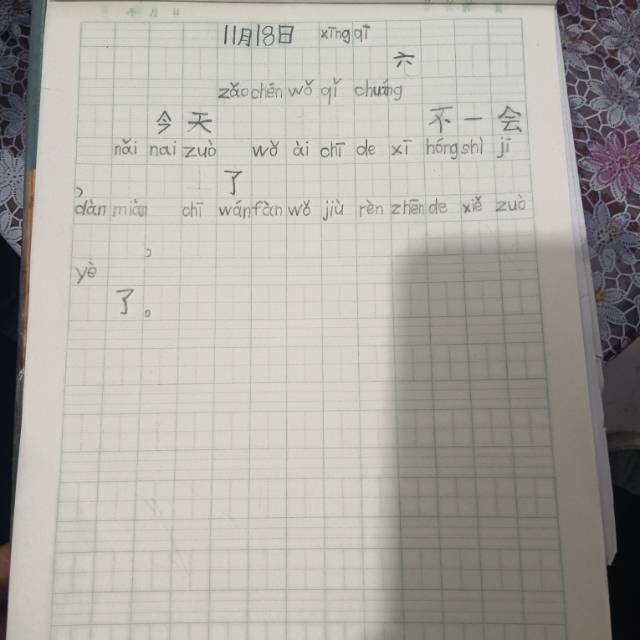 11月18日 xīngqī
六
zǎochēn wǒ qǐ chuáng
今天 不一会
nǎi nai zuò wǒ ài chī de xī hóngshì jī
了
,
dàn miàn chī wánfàn wǒ jiù rèn zhēnde xiě zuò
。
yè
了。